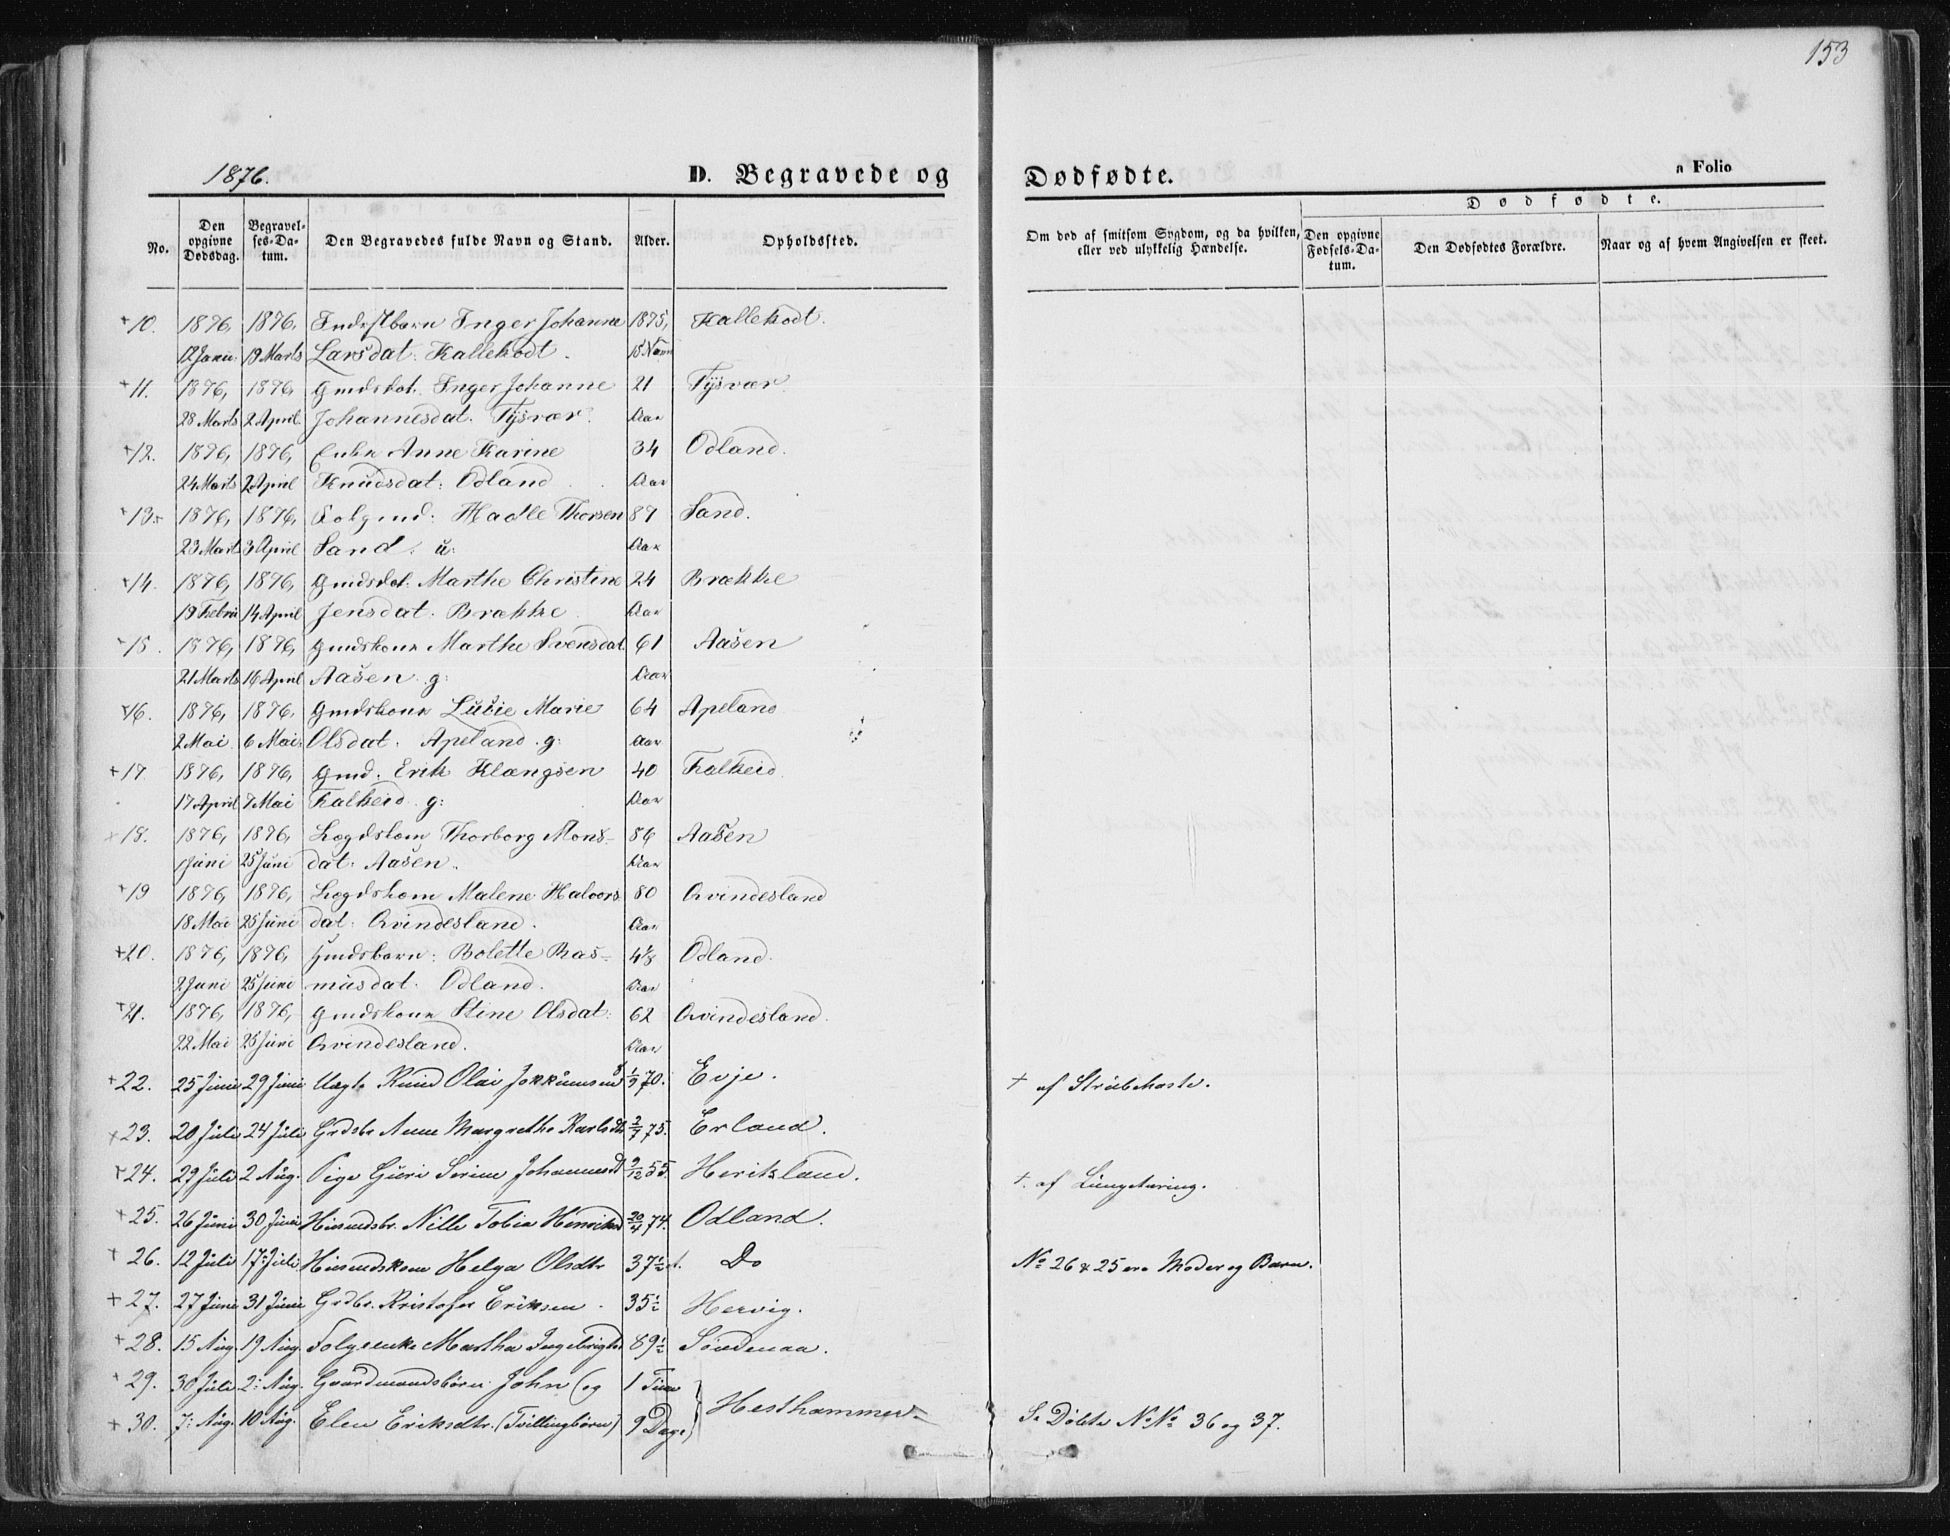 153
1876.
D. Begravede og Dødfødte.
n Folio
Dødfødte.
No.
Den opgivne Dødsdag.
Begravelses-Datum.
Den Begravedes fulde Navn og Stand.
Alder.
Opholdssted.
Om død af smitsom Sygdom, og da hvilken, eller ved ulykkelig Hændelse.
Den opgivne Fødsels-Datum.
Den Dødfødtes Forældre.
Naar og af hvem Angivelsen er skeet.
+10. 1876, 1876, Inger Johanne 1875, Kallekodt.
12 Janu: 19 Marts Larsdat: Kallekodt. 15 Novm
+11. 1876, 1876, Gmdsdat. Inger Johanne 21 Tysvær.
28 Marts 2 April Johannesdat. Tysvær. Aar
+12. 1876, 1876, Enke Anne Karine 34 Odland.
24 Marts 2 April Knudsdat: Odland Aar
+13. 1876, 1876, Folgmd: Hadle Thorsen 87 Sand.
23 Marts 3 April Sand. u: Aar
+14. 1876, 1876, Gmdsdat: Marthe Christine 24 Brække
19 Febru 14 April Jensdat. Brække Aar
+15. 1876, 1876, Gmdskone Marthe Svensdat 61 Aasen
21 Marts 16 April Aasen g: Aar
+16. 1876, 1876, Gmdskone Marie 64 Apeland
2 Mai 6 Mai Olsdat. Apeland g: Aar
+17. 1876, 1876, Gmd. Erik Klængsen 40 Falkeid.
17 April 7 Mai Falkeid g: Aar
+18. 1876, 1876, Lægdskom Thorborg Mons- 86 Aasen
1 Juni 25 Juni dat: Aasen. Aar
+19 1876, 1876, Lægdskom Malene Halvors 80 Qvindesland
18 Mai 25 Juni dat: Qvindesland. Aar
+20. 1876, 1876, Gmdsbarn: Bolette Ras- 4 1/3 Odland.
2 Juni 25 Juni musdat. Odland. Aar
+21. 1876, 1876, Gmdskone Stine Olsdat: 62 Qvindesland.
22 Mai 25 Juni Qvindesland. Aar
+22. 25 Juni 29 Juni Olai 1/9 70. Evje. + af Strubehoste.
+23. 20 Juli 24 Juli Grdsbr Anne Margrethe Karlsdtr 2/7 75. Erland.
+24. 29 Juli 2 Aug. Pige Guri Serine Johannesdt 9/12 55. Heriksland. +. af Lungetæring.
+25. 26 Juni 30 Juni Husmdsbr. Nille Tobia 20/4 74. Odland.
+26. 12 Juli 17: Juli Husmdskone Helga Olsdtr 37 1/2 Do No 26 & 25 ere Moder og Barn.
+27. 27 Juni 31 Juni Grdbr. Kristofer Eriksen 35 1/2 Hervig.
+28. 15 Aug. 19 Aug. Folgeenke Martha Ingebrigtsd 89 1/2 Søndenaa.
+29. 30 Juli 2: Aug. Gaardmandsbørn John (og 1 Time
Hesthammer
+30. 7: Aug. 10 Aug. Elen Eriksdtr. (Tvillingbørn) 9 Dage) Se Døbte No No 36 og 37.